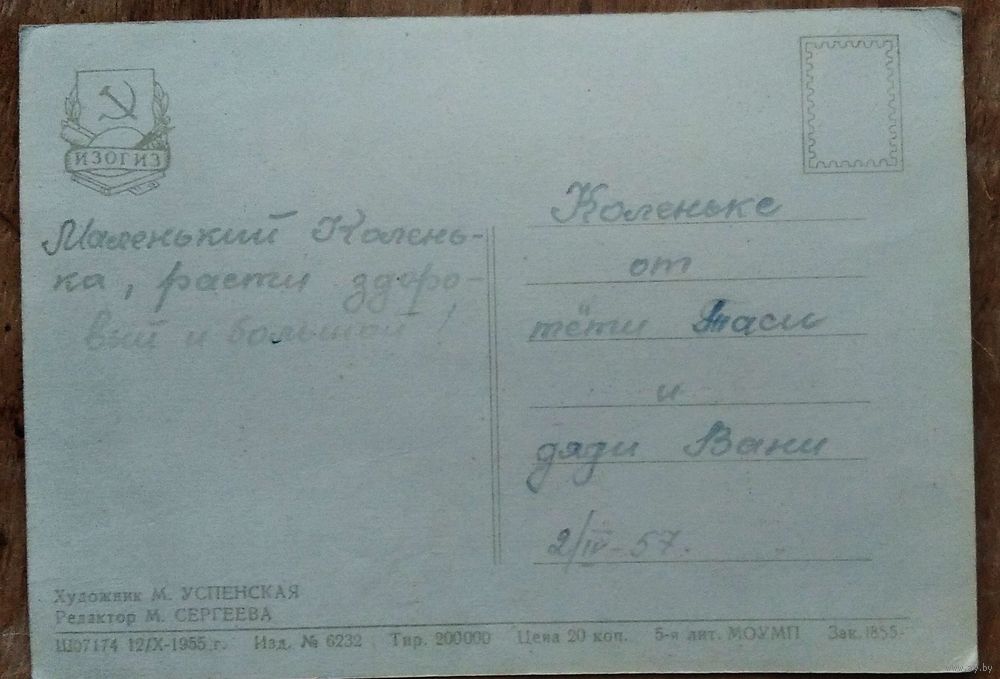 ИЗОГИЗ
Маленький Колень-
ка, расти здоро-
вый и большой!
Коленьке
от
тёти Таси
и
дяди Вани
2/IV-57.
Художник М. УСПЕНСКАЯ
Редактор М. СЕРГЕЕВА
Ш07174 12/X-1955 г. Изд. № 6232 Тир. 200000 Цена 20 коп. 5-я лит. МОУМП Зак. 1855